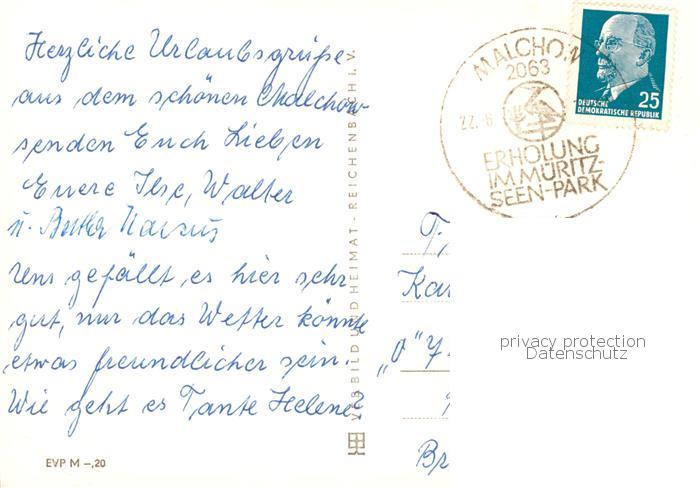 Herzliche Urlaubsgrüße
aus dem schönen Malchow
senden Euch Lieben
Euere Ilse, Walter
u.
Uns gefällt es hier sehr
gut, nur das Wetter könnte
etwas freundlicher sein.
Wie geht es Tante Helene?
EVP M –,20
VEB BILD UND HEIMAT · REICHENBACH I. V.
MALCHO
2063
22.-8
ERHOLUNG
IM MÜRITZ-
SEEN-PARK
25
DEUTSCHE
DEMOKRATISCHE REPUBLIK
Kar
Br
privacy protection
Datenschutz